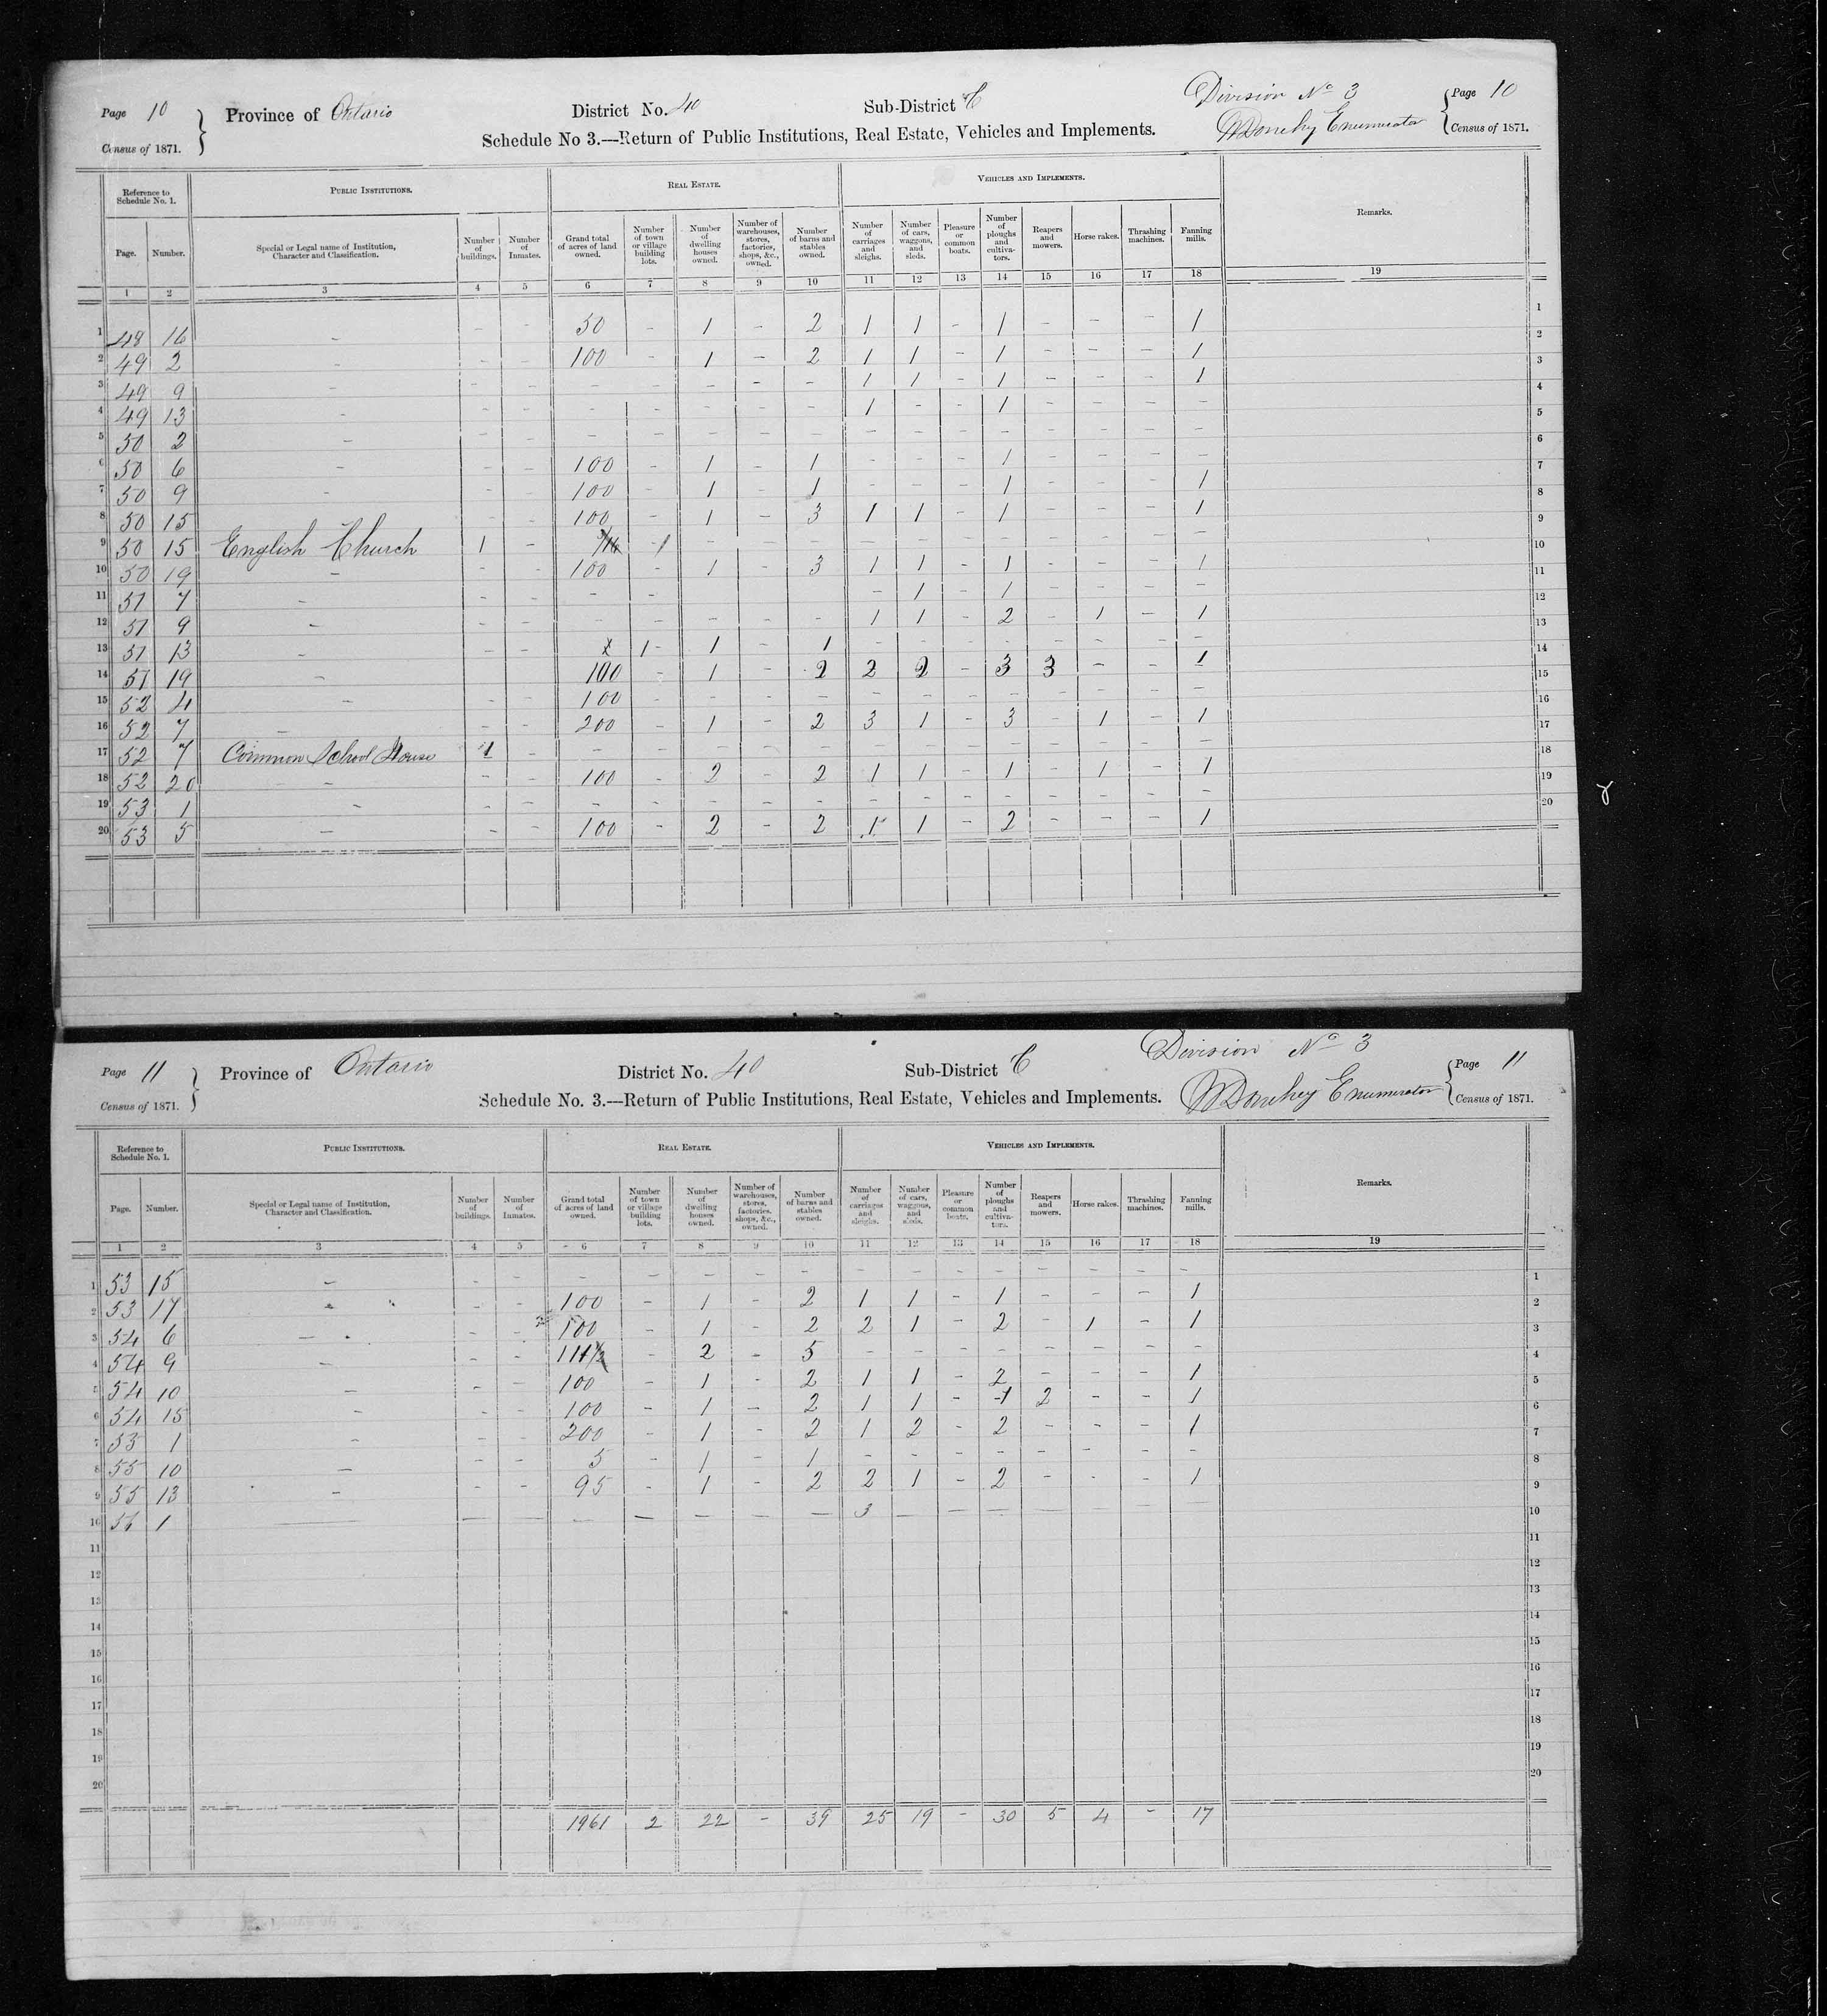 Page 10 Province of Ontario District No. 40 Sub-District C Division No 3 Page 10
Census of 1871. Schedule No 3.—Return of Public Institutions, Real Estate, Vehicles and Implements. Enumerator Census of 1871.
Reference to Schedule No. 1. PUBLIC INSTITUTIONS. REAL ESTATE. VEHICLES AND IMPLEMENTS. Remarks.
Page. Number. Special or Legal name of Institution, Character and Classification. Number of buildings. Number of Inmates. Grand total of acres of land owned. Number of town or village building lots. Number of dwelling houses owned. Number of warehouses, stores, factories, shops, &c., owned. Number of barns and stables owned. Number of carriages and sleighs. Number of cars, waggons, and sleds. Pleasure or common boats. Number of ploughs and cultivators. Reapers and mowers. Horse rakes. Thrashing machines. Fanning mills.
1 2 3 4 5 6 7 8 9 10 11 12 13 14 15 16 17 18 19
1 48 16 - - - 50 - 1 - 2 1 1 - 1 - - - 1 1
2 49 2 - - - 100 - 1 - 2 1 1 - 1 - - - 1 2
3 49 9 - - - - - - - - 1 1 - 1 - - - 1 3
4 49 13 - - - - - - - - 1 - - 1 - - - - 4
5 50 2 - - - - - - - - - - - - - - - - 5
6 50 6 - - - 100 - 1 - 1 - - - 1 - - - - 6
7 50 9 - - - 100 - 1 - 1 - - - 1 - - - 1 7
8 50 15 - - 100 - 1 - 3 1 1 - 1 - - - 1 8
9 50 15 English Church 1 - 1 - - - - - - - - - - - 9
10 50 19 - - - 100 - 1 - 3 1 1 - 1 - - - 1 10
11 51 7 - - - - - - 1 - 1 - - - - 11
12 51 9 - - - - - - - - 1 1 - 2 - 1 - 1 12
13 51 13 - - - 1 - 1 - 1 - - - - - - - - 13
14 51 19 - 100 - 1 - 2 2 2 - 3 3 - - 1 14
15 52 4 - - - 100 - - - - - - - - - - - - 15
16 52 7 - - - 200 - 1 - 2 3 1 - 3 - 1 - 1 16
17 52 7 Common School House 1 - - - - - - - - - - - - - - 17
18 52 20 - - - 100 - 2 - 2 1 1 - 1 - 1 - 1 18
19 53 1 - - - - - - - - - - - - - - - - 19
20 53 5 - - - 100 - 2 - 2 1 1 - 2 - - - 1 20
Page 11 Province of Ontario District No. 40 Sub-District C Division No 3 Page 11
Census of 1871. Schedule No. 3.—Return of Public Institutions, Real Estate, Vehicles and Implements. Enumerator Census of 1871.
Reference to Schedule No. 1. PUBLIC INSTITUTIONS. REAL ESTATE. VEHICLES AND IMPLEMENTS. Remarks.
Page. Number. Special or Legal name of Institution, Character and Classification. Number of buildings. Number of Inmates. Grand total of acres of land owned. Number of town or village building lots. Number of dwelling houses owned. Number of warehouses, stores, factories, shops, &c., owned. Number of barns and stables owned. Number of carriages and sleighs. Number of cars, waggons, and sleds. Pleasure or common boats. Number of ploughs and cultivators. Reapers and mowers. Horse rakes. Thrashing machines. Fanning mills.
1 2 3 4 5 6 7 8 9 10 11 12 13 14 15 16 17 18 19
1 53 15 - - - - - - - - - - - - - - - - 1
2 53 17 - - - 100 - 1 - 2 1 1 - 1 - - - 1 2
3 54 6 - - - 100 - 1 - 2 2 1 - 2 - 1 - 1 3
4 54 9 - - - 111 - 2 - 5 - - - - - - - - 4
5 54 10 - - - 100 - 1 - 2 1 1 - 2 - - - 1 5
6 54 15 - - - 100 - 1 - 2 1 1 - 1 2 - - 1 6
7 53 1 - - - 200 - 1 - 2 1 2 - 2 - - - 1 7
8 55 10 - - - 5 - 1 - 1 - - - - - - - - 8
9 55 13 - - - 95 - 1 - 2 2 1 - 2 - - - 1 9
10 56 1 - - - - - - - - 3 - - - - - - - 10
11 11
12 12
13 13
14 14
15 15
16 16
17 17
18 18
19 19
20 20
1961 2 22 - 39 25 19 - 30 5 4 - 17